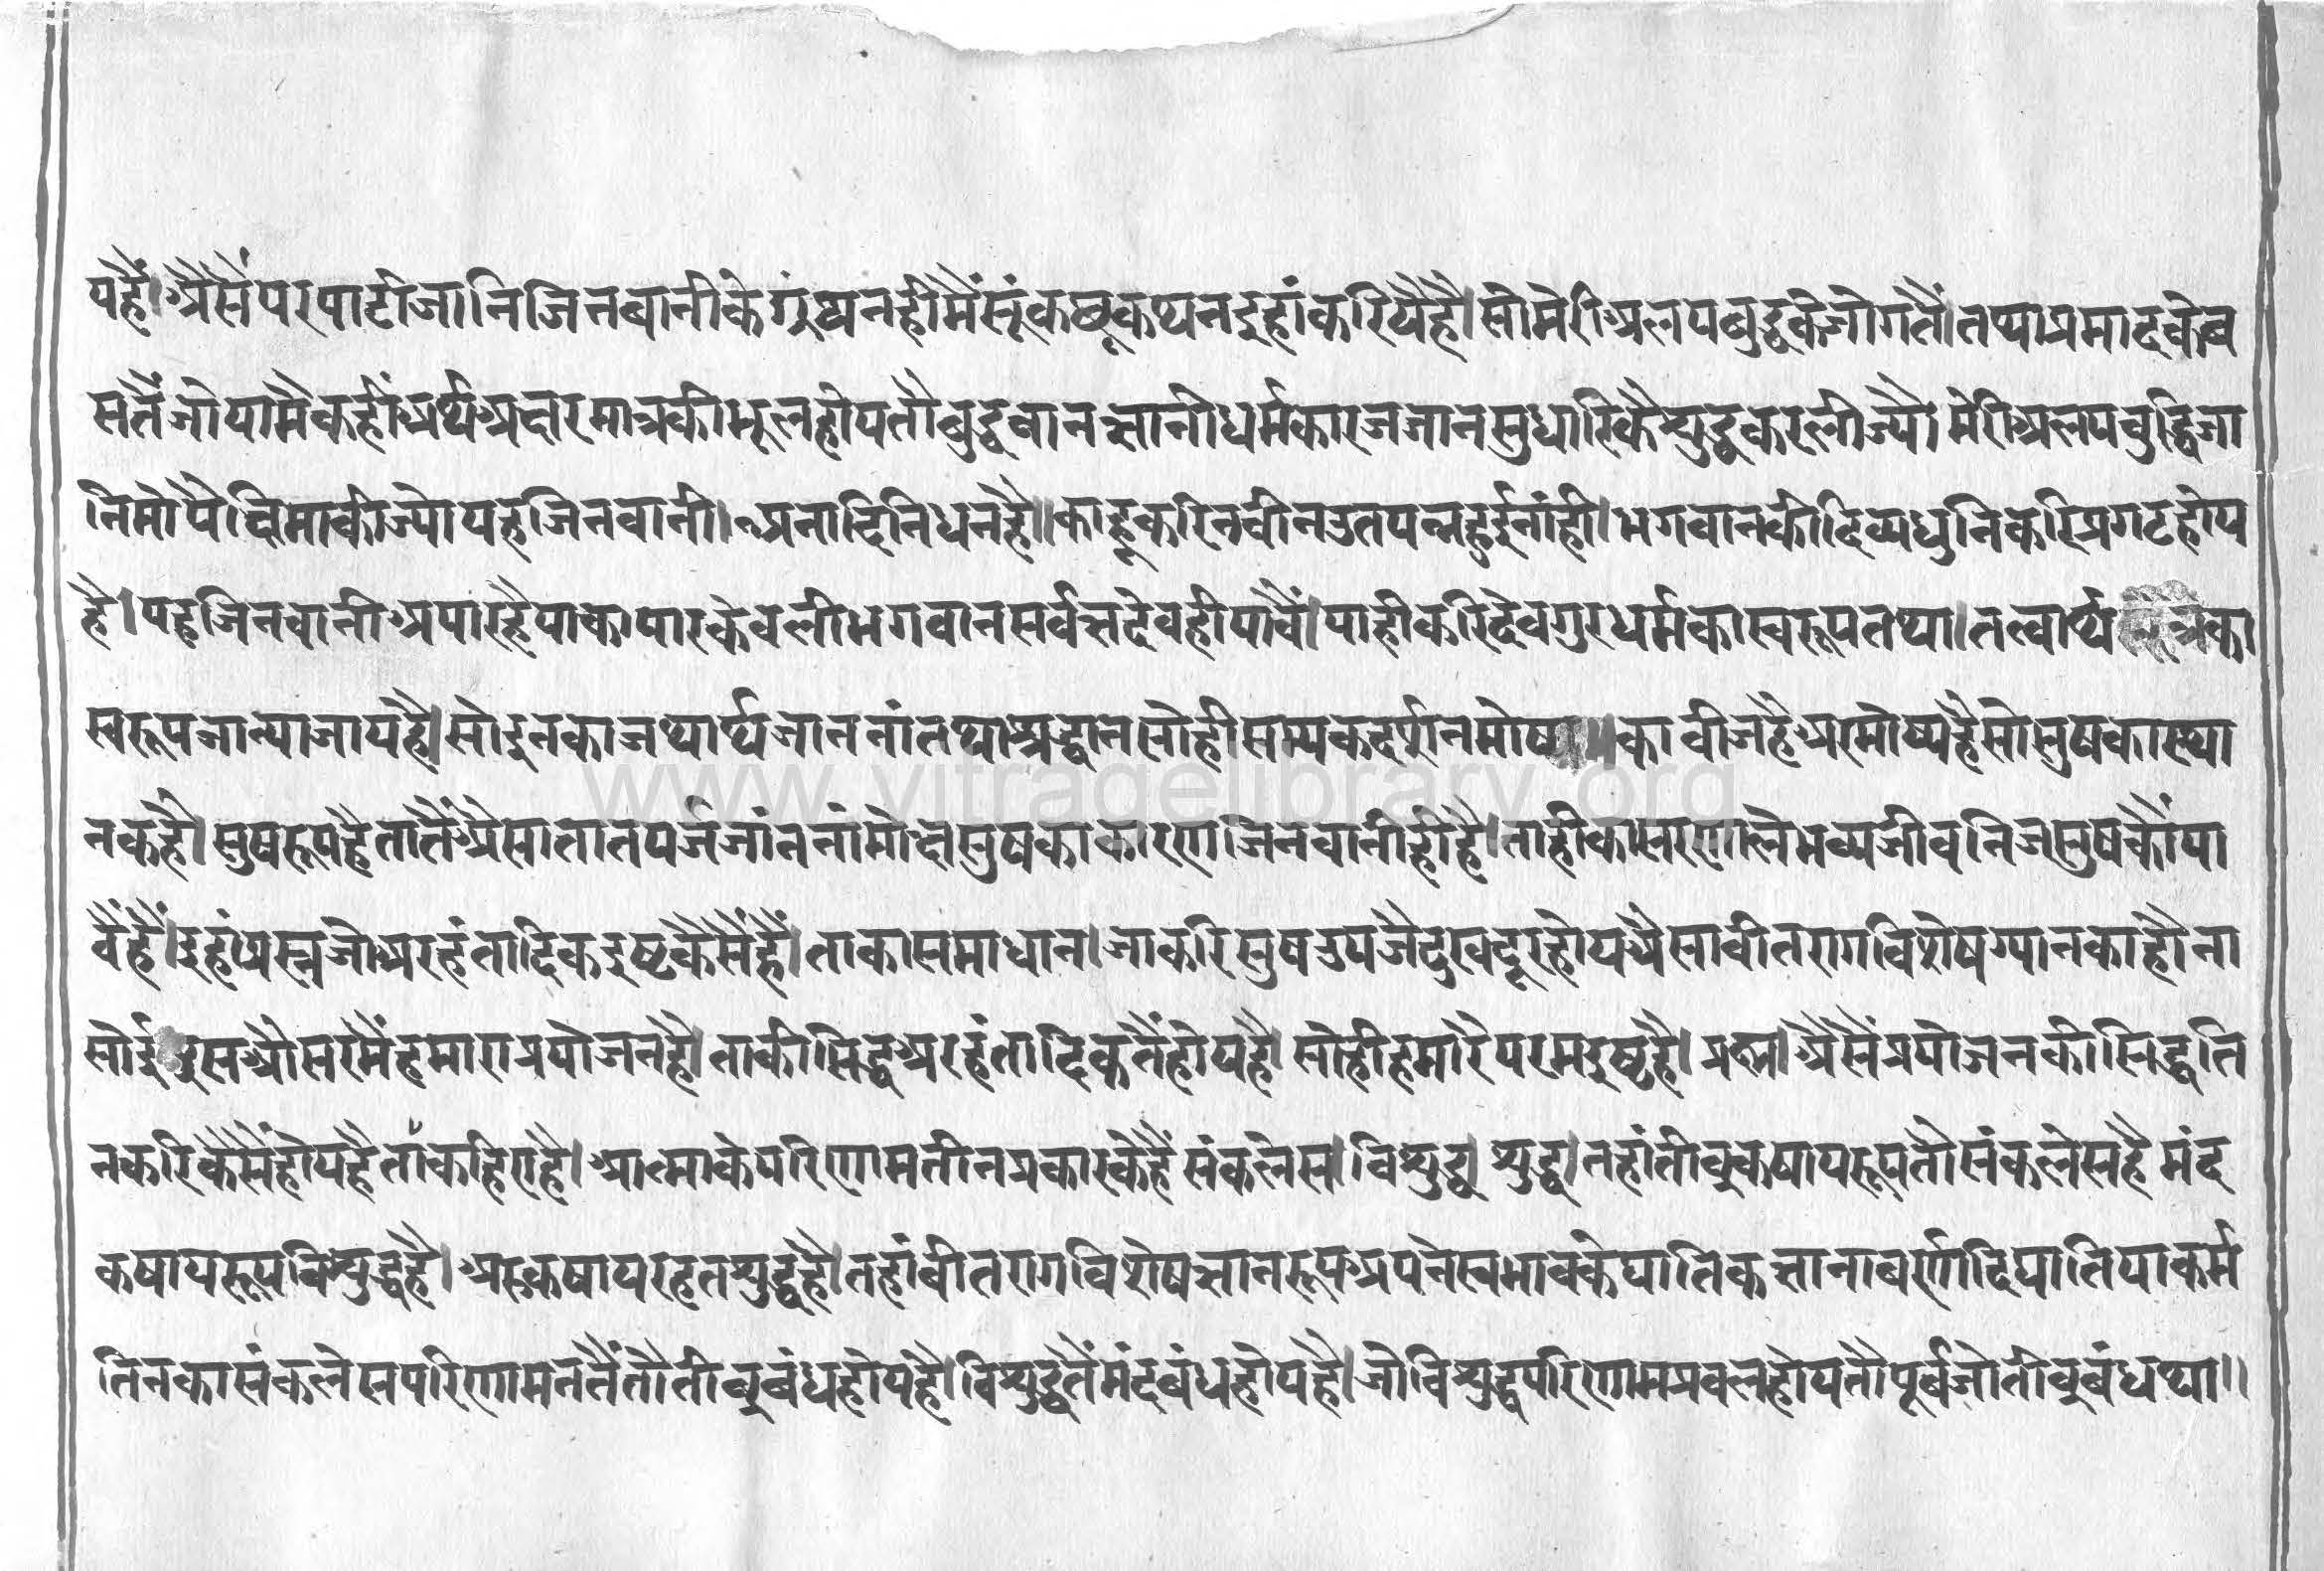 यहैं। अैसैं परपाटी जानि जिनबानी के गुंथनही मैं सूं कछू कथन इहां करियै है। सो मेरी अलप बुद्ध के जोग तैं। तथा प्रमाद के ब
स तैं जो यामै कहीं अर्थ अक्षर मात्र की भूल होय तौ बुद्धवान ज्ञानी धर्म कारज जान सुधारि कै शुद्ध कर लीज्यै। मेरी अलप बुद्धि जा
नि मो पै क्षिमा कीज्यो यह जिनवानी। अनादि निधन है॥ काहू करि नवीन उतपन्न हुई नांही। भगवान की दिव्य धुनि करि प्रगट होय
है। यह जिनवानी अपार है या का पार केवली भगवान सर्वज्ञ देव ही पावैं। याही करि देव गुर धर्म का स्वरूप तथा। तत्वार्थ सूत्र का
स्वरूप जान्या जाय है। सो इनका जथार्थ जाननां तथा श्रद्धान सो ही सम्यक दर्शन मोष का बीज है अर मोष्य है सो सुष का स्था
नक है। सुषरूप है तातैं अैसा तातपर्ज जांननां मोक्ष सुष का कारण जिनवानी ही है। ताही का सरण ले भव्य जीव निज सुष कौं पा
वैं हैं। इहां प्रस्न जो अरहंतादिक इष्ट कैसैं हैं। ताका समाधान। जा करि सुष उपजै दुख दूर होय अैसा वीतराग विशेष ग्यान का हौना
सोई इस औसर मैं हमारा प्रयोजन है। ताकी सिद्ध अरहंतादिक तैं होय है। सो ही हमारै परम इष्ट है। प्रश्न। अैसैं प्रयोजन की सिद्ध ति
न करि कैसैं होय है तो कहिए है। आत्मा के परिणाम तीन प्रकार के हैं संकलेस। विशुद्ध। शुद्ध। तहां तीव्र कषायरूप तौ संकलेस है मंद
कषायरूप विशुद्ध है। अर कषाय रहत शुद्ध है। तहां बीतराग विशेष ज्ञानरूप अपने स्वभाव के घातिक ज्ञानाबर्णादि घातिया कर्म
तिनका संकलेस परिणामन तैं तौ तीव्र बंध होय है। विशुद्ध तैं मंद बंध होय है। जो विशुद्ध परिणाम प्रबल होय तौ पूर्ब जो तीव्र बंध था॥